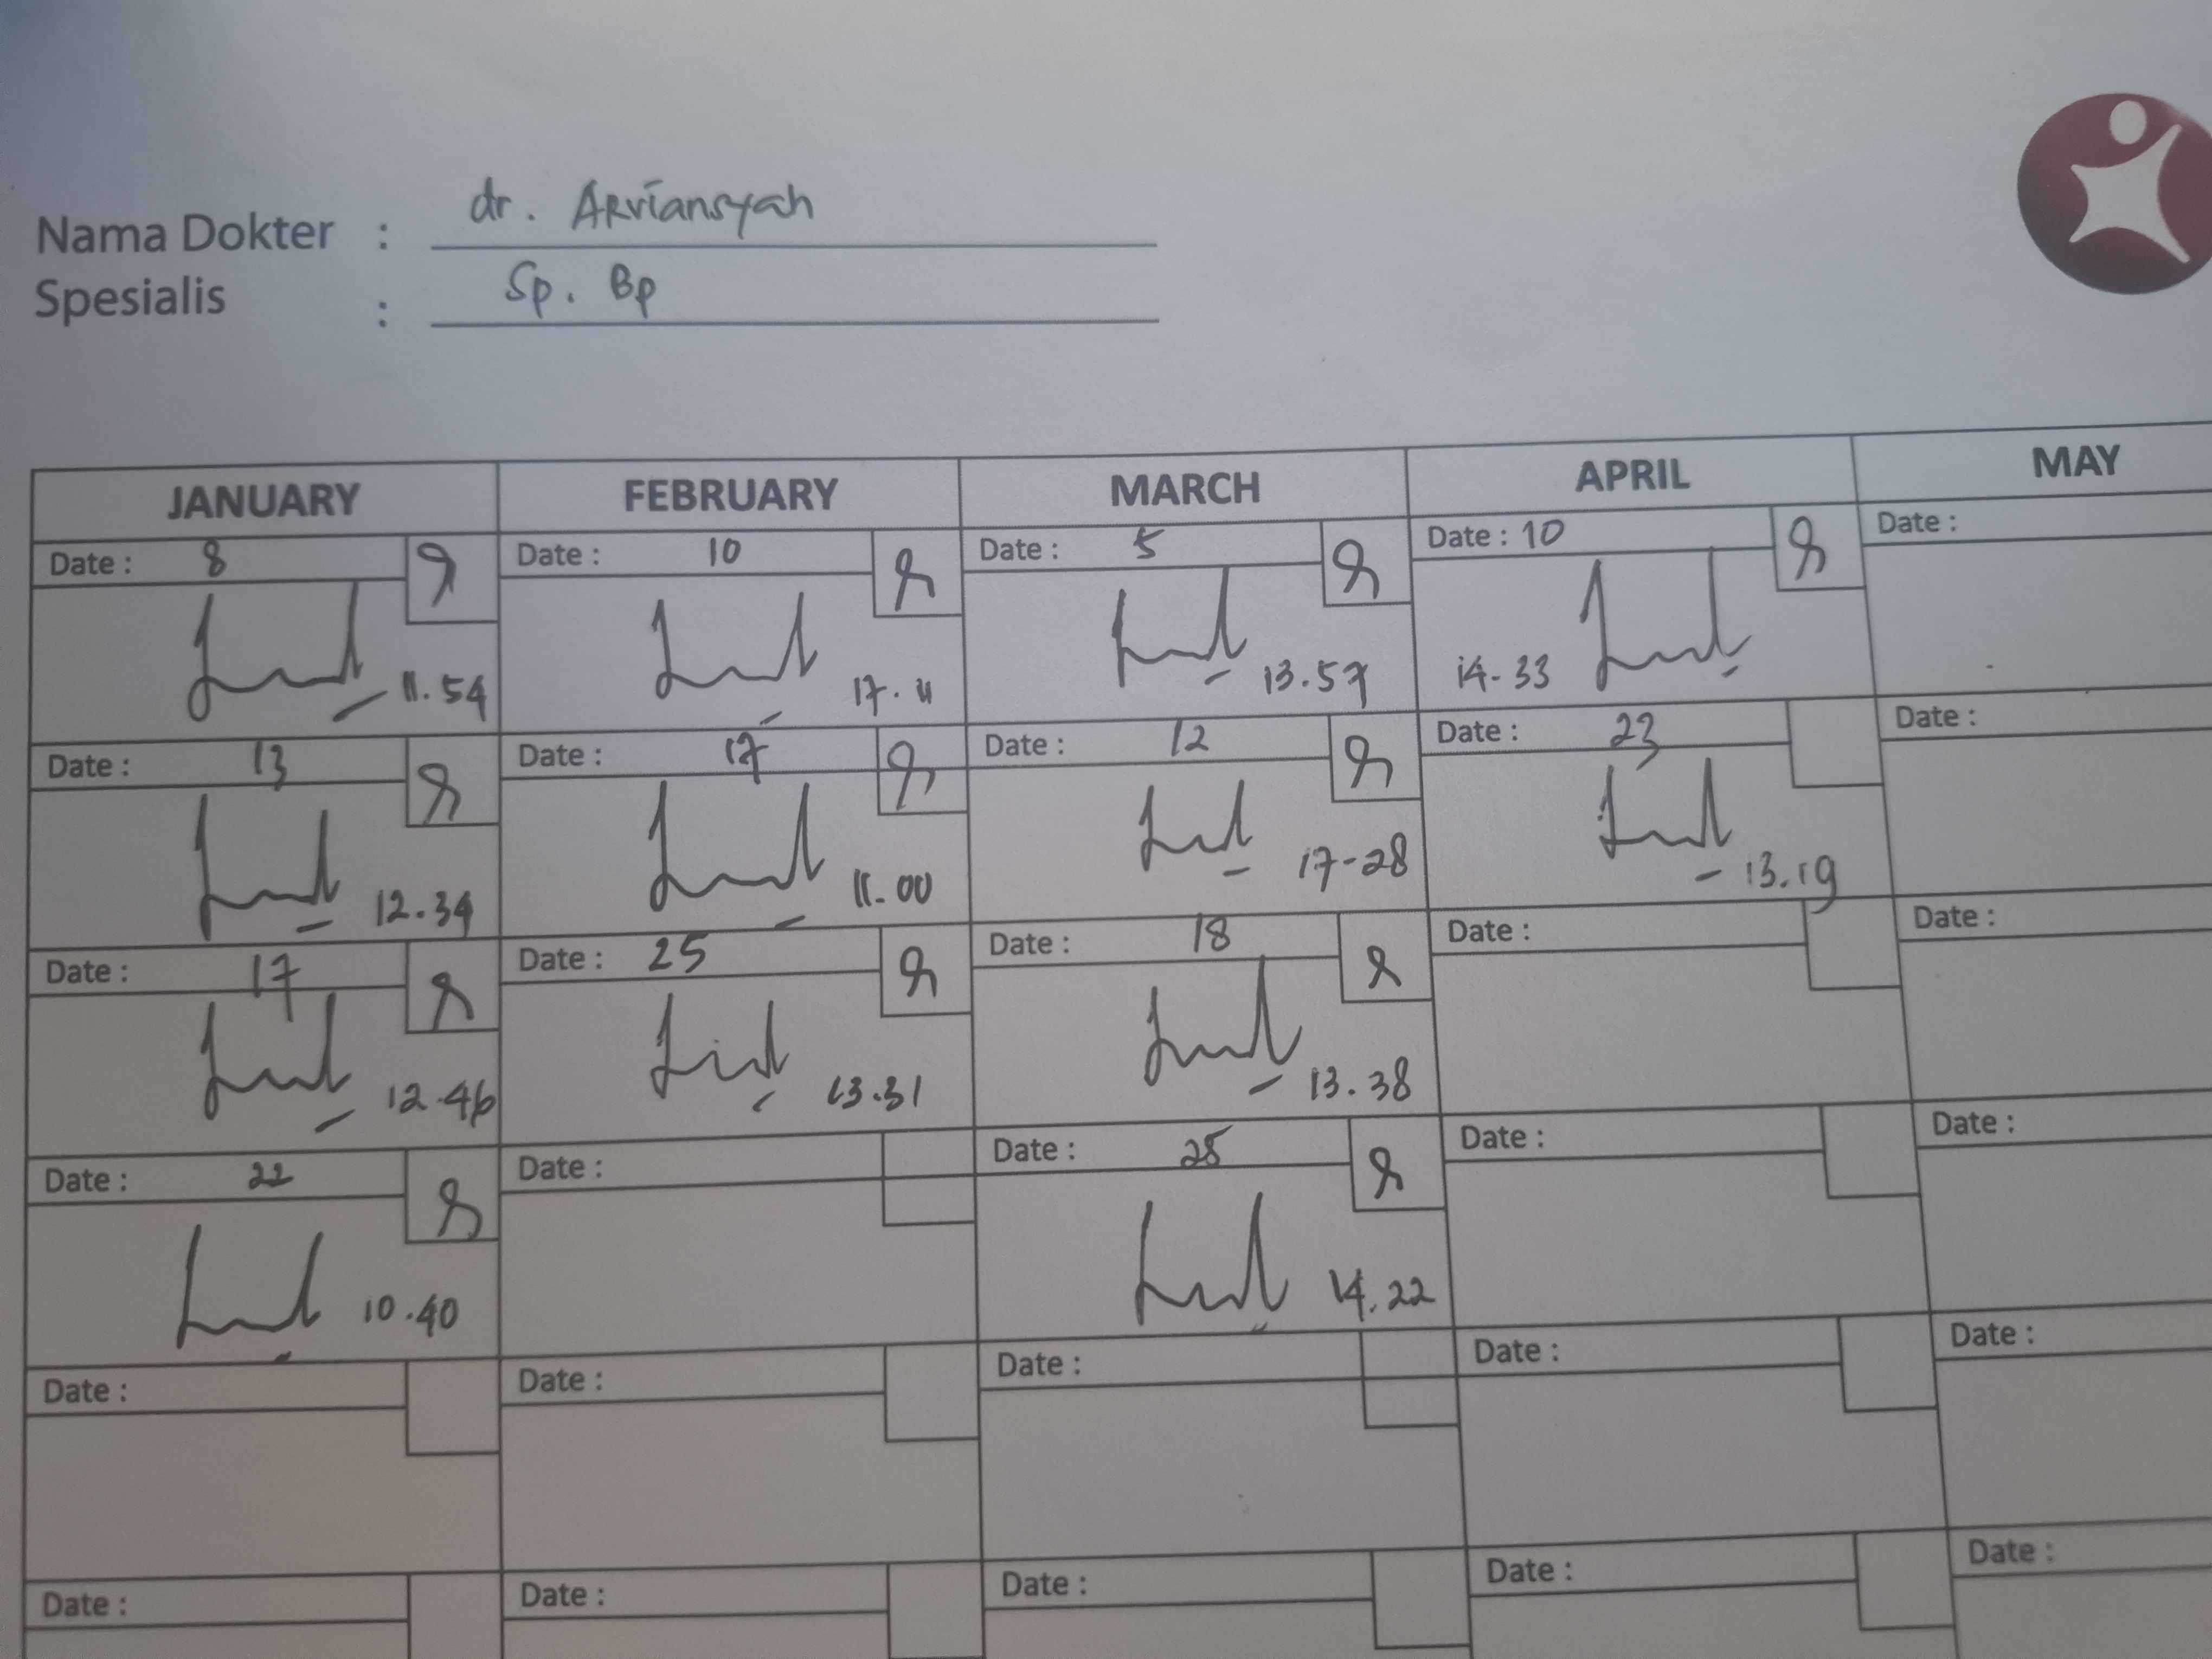 Nama Dokter : dr. Arviansyah
Spesialis : Sp. Bp
JANUARY FEBRUARY MARCH APRIL MAY
Date : 8 Date : 10 Date : 5 Date : 10 Date :
11.54 17.11 13.57 14-33
Date : 13 Date : 17 Date : 12 Date : 23 Date :
12.34 11.00 17-28 13.19
Date : 17 Date : 25 Date : 18 Date : Date :
12.46 13.31 13.38
Date : 22 Date : Date : 25 Date : Date :
10.40 14.22
Date : Date : Date : Date : Date :
Date : Date : Date : Date : Date :